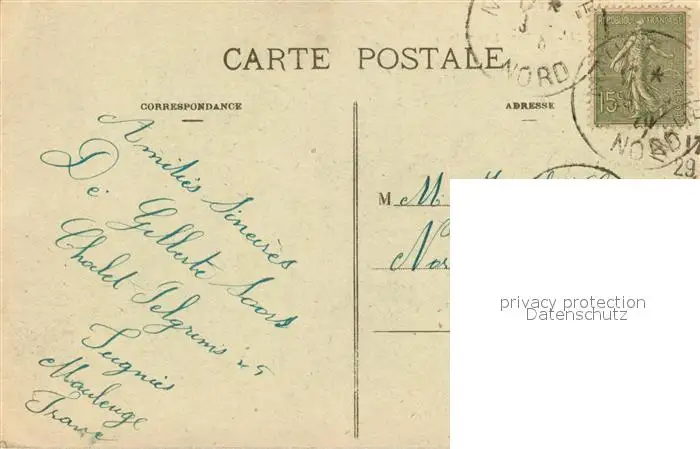 CARTE POSTALE
CORRESPONDANCE
ADRESSE
REPUBLIQUE FRANÇAISE
15c
NORD
NORD
29
Amitiés Sincères
De Gilberte Soors
Chalet Pelgrims 45
Feignies
Maubeuge
France
M M.
Nor
privacy protection
Datenschutz